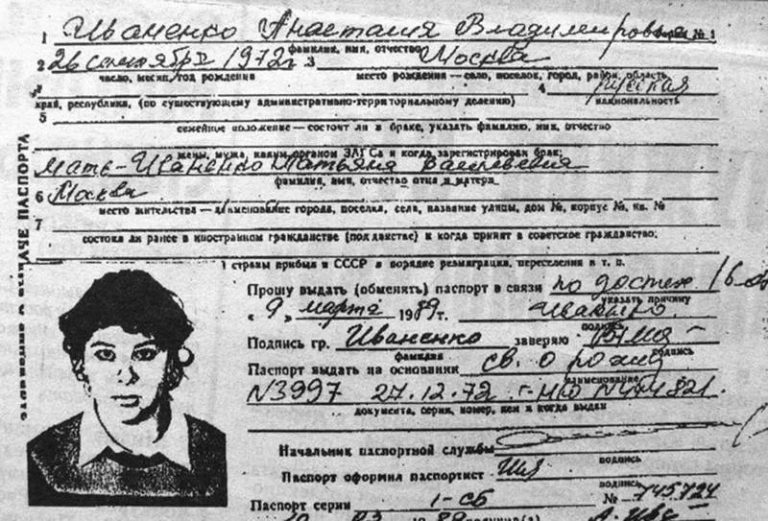 1 Иваненко Анастасия Владимировна
фамилия, имя, отчество
2 26 сентября 1972г 3 Москва
число, месяц, год рождения место рождения — село, поселок, город, район, область,
4 русская
край, республика, (по существующему административно-территориальному делению) национальность
5
семейное положение — состоит ли в браке, указать фамилию, имя, отчество
жены, мужа, каким органом ЗАГСа и когда зарегистрирован брак;
мать - Иваненко Татьяна Васильевна
фамилия, имя, отчество отца и матери
6 Москва
место жительства — наименование города, поселка, села, название улицы, дом №, корпус №, кв. №
7
состоял ли ранее в иностранном гражданстве (подданстве) и когда принят в советское гражданство;
из страны прибыл в СССР в порядке реэмиграции, переселения и т. п.
Прошу выдать (обменять) паспорт в связи по достиж 16
указать причину
« 9 » марта 1989г.
подпись
Подпись гр. Иваненко заверяю
фамилия подпись
Паспорт выдать на основании св. о рожд
наименование
N3997 27.12.72
документа, серия, номер, кем и когда выдан
Начальник паспортной службы
подпись
Паспорт оформил паспортист
подпись
Паспорт серии I-СБ № 745724
ПАСПОРТА